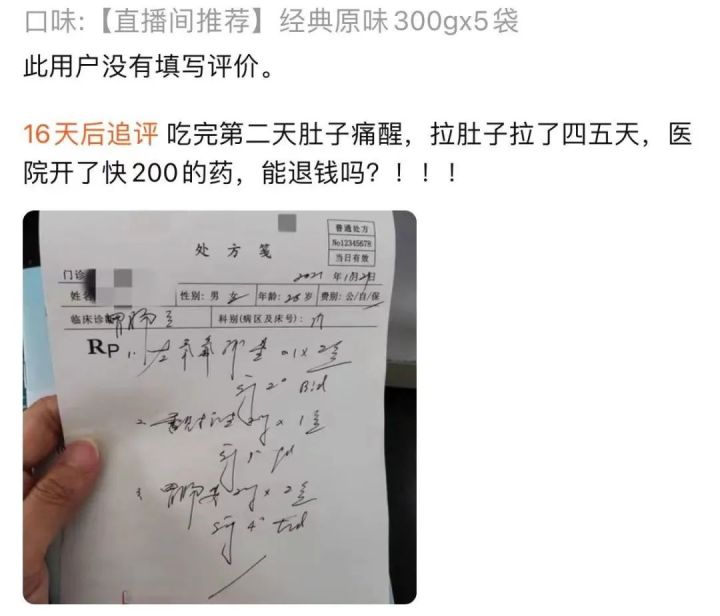 口味:【直播间推荐】经典原味300gx5袋
此用户没有填写评价。
16天后追评 吃完第二天肚子痛醒，拉肚子拉了四五天，医
院开了快200的药，能退钱吗？！！！！
普通处方
处方笺
No12345678
当日有效
门诊
2021年1月29日
姓名 性别:男 女 年龄:25岁 费别:公/自/保
临床诊断 胃肠炎 科别(病区及床号): 内
RP 1. 0.1 x 2盒
sig 2# Bid
2. x 1盒
sig
3. 胃肠安 x 2盒
sig 4# Tid